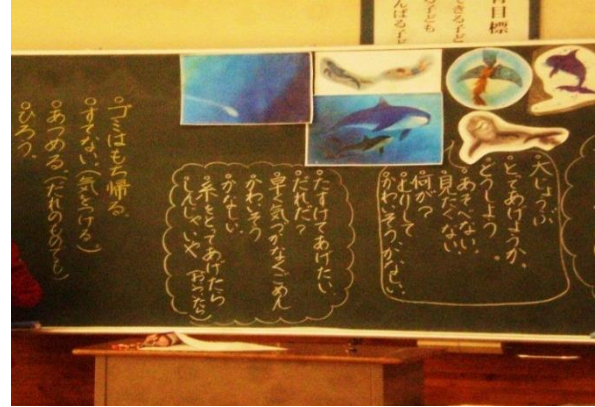 育目標
できる子ども
んばる子ど
大じょうぶ
とってあげようか。
どうしよう。
あそべない。
見たくない
何が?
むりして
かわいそう、かなしい
たすけてあげたい。
だれだ?
早く気づかなくてごめん
かわいそう
かなしい
糸をとってあげたら
しんじゃいや
ゴミはもち帰る。
すてない、(気をつける)
あつめる、(だれのものでも)
ひろう、